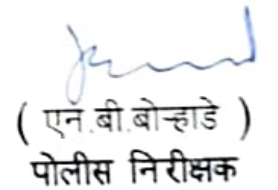 ( एन.बी.बोऱ्हाडे )
पोलीस निरीक्षक